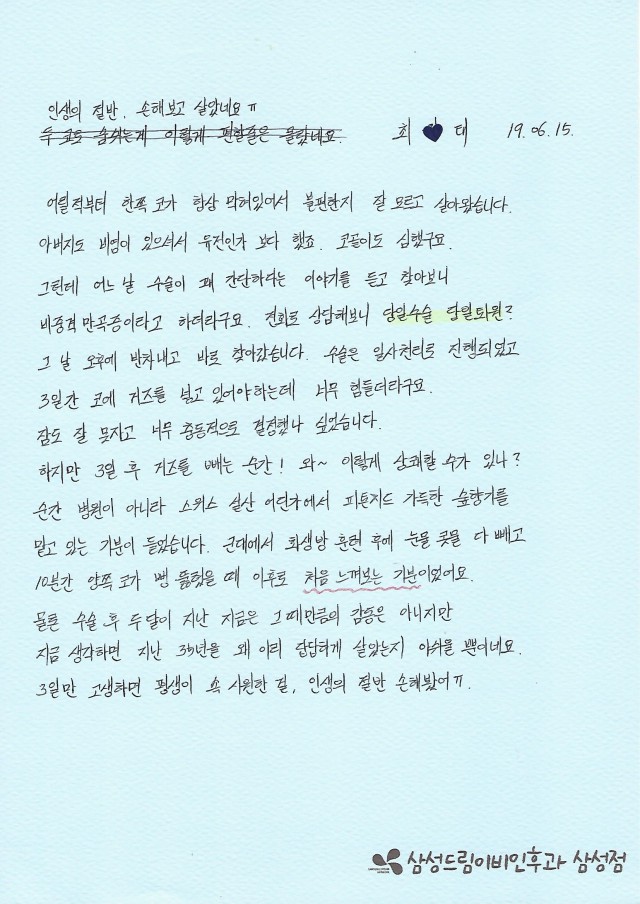 인생의 절반, 손해보고 살았네요ㅠ
두 코로 숨쉬는게 이렇게 편할줄은 몰랐네요. 최 태 19. 06. 15.
어릴적부터 한쪽 코가 항상 막혀있어서 불편한지 잘 모르고 살아왔습니다.
아버지도 비염이 있으셔서 유전인가 보다 했죠. 코골이도 심했구요.
그런데 어느 날 수술이 꽤 간단하다는 이야기를 듣고 찾아보니
비중격 만곡증이라고 하더라구요. 전화로 상담해보니 당일수술 당일퇴원?
그 날 오후에 반차내고 바로 찾아갔습니다. 수술은 일사천리로 진행되었고
3일간 코에 거즈를 넣고 있어야하는데 너무 힘들더라구요.
잠도 잘 못자고 너무 충동적으로 결정했나 싶었습니다.
하지만 3일 후 거즈를 빼는 순간! 와~ 이렇게 상쾌할 수가 있나?
순간 병원이 아니라 스위스 설산 어딘가에서 피톤치드 가득한 숲향기를
맡고 있는 기분이 들었습니다. 군대에서 화생방 훈련 후에 눈물 콧물 다 빼고
10분간 양쪽 코가 뻥 뚫렸을 때 이후로 처음 느껴보는 기분이었어요.
물론 수술 후 두달이 지난 지금은 그때만큼의 감동은 아니지만
지금 생각하면 지난 35년을 왜 이리 답답하게 살았는지 아쉬울 뿐이네요.
3일만 고생하면 평생이 속 시원한 걸, 인생의 절반 손해봤어ㅠ.
삼성드림이비인후과 삼성점